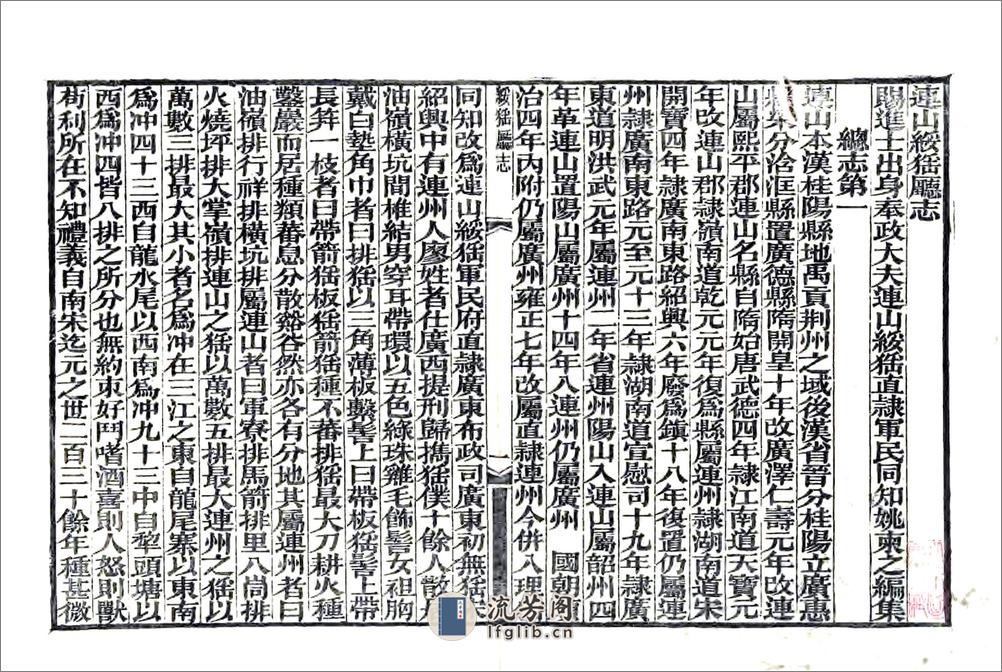 連山綏猺廳志
賜進士出身奉政大夫連山綏猺直隸軍民同知姚柬之編集
總志第一
連山本漢桂陽縣地禹貢荆州之域後漢省晉分桂陽立廣惠
分浛洭縣置廣德縣隋開皇十年改廣澤仁壽元年改連
山屬熙平郡連山名縣自隋始唐武德四年隸江南道天寶元
年改連山郡隸嶺南道乾元元年復爲縣屬連州隸湖南道宋
開寶四年隸廣南東路紹興六年廢爲鎮十八年復置仍屬連
州隸廣南東路元至元十三年隸湖南道宣慰司十九年隸廣
東道明洪武元年屬連州二年省連州陽山入連山屬韶州四
年革連山置陽山屬廣州十四年八連州仍屬廣州 國朝
治四年內附仍屬廣州雍正七年改屬直隸連州今併入理
綏猺廳志
同知改爲連山綏猺軍民府直隸廣東布政司廣東初無猺
紹興中有連州人廖姓者仕廣西提刑歸攜猺僕十餘人散
油嶺橫坑間椎結男穿耳帶環以五色綠珠雞毛飾髻女袒胸
戴白墊角巾者曰排猺以三角薄板繫髻上曰帶板猺髻上帶
長筓一枝者曰帶箭猺板猺箭猺種不蕃排猺最大刀耕火種
鑿巖而居種類蕃息分散谿谷然亦各有分地其屬連州者曰
油嶺排行祥排橫坑排屬連山者曰軍寮排馬箭排里八尚排
火燒坪排大掌嶺排連山之猺以萬數五排最大連州之猺以
萬數三排最大其小者名爲冲在三江之東自龍尾寨以東南
爲冲四十三西自龍水尾以西南爲冲九十三中自犂頭塘以
西爲冲四皆八排之所分也無約束好鬥嗜酒喜則人怒則獸
茍利所在不知禮義自南宋迄元之世二百三十餘年種甚微
流芳阁
lfglib.cn